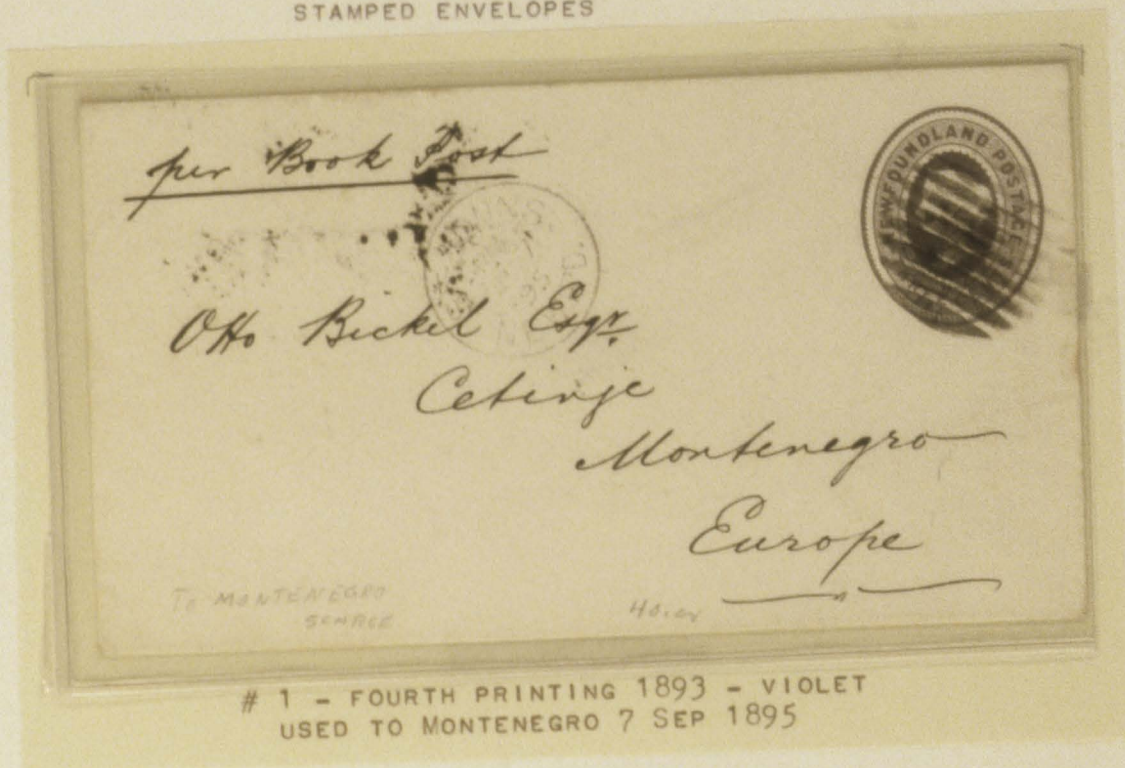 STAMPED ENVELOPES
per Book Post
NEWFOUNDLAND POSTAGE
Otto Bickel Esqr.
Cetinje
Montenegro
Europe
To MONTENEGRO
SCARCE
40.00
# 1 - FOURTH PRINTING 1893 - VIOLET
USED TO MONTENEGRO 7 SEP 1895